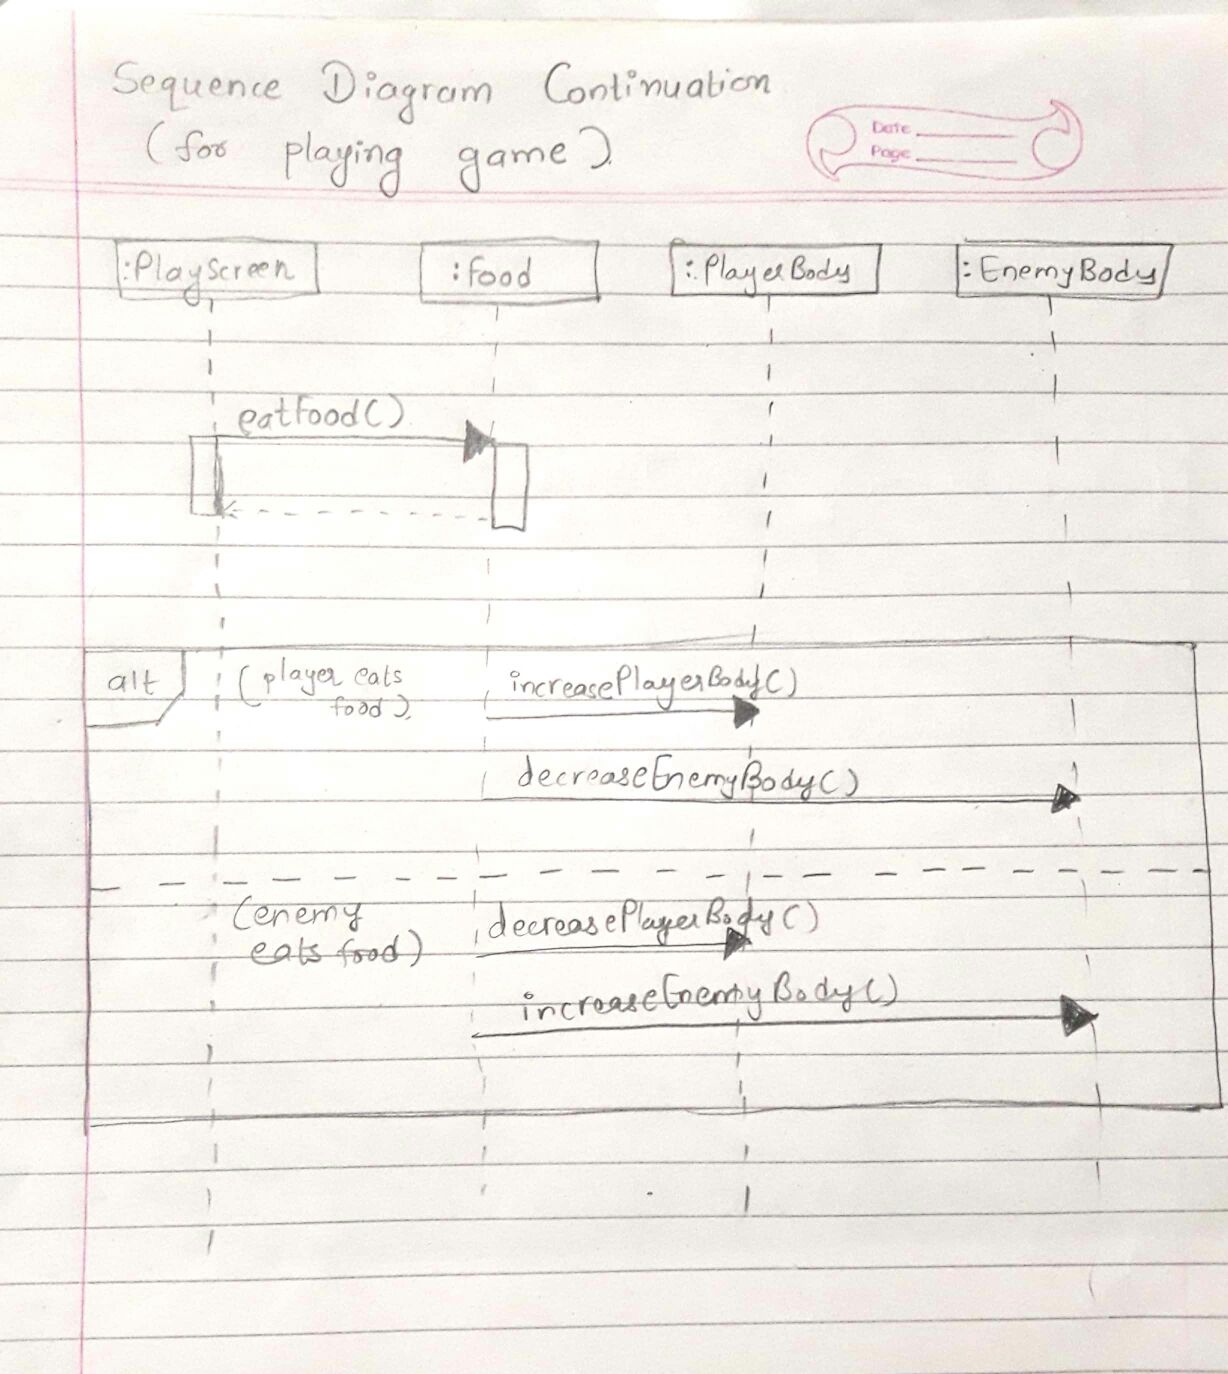 Sequence Diagram Continuation
(for playing game).
Date
Page
:PlayScreen :Food :PlayerBody :EnemyBody
eatFood()
alt (player eats increasePlayerBody()
food).
decreaseEnemyBody()
(enemy decreasePlayerBody()
eats food)
increaseEnemyBody()